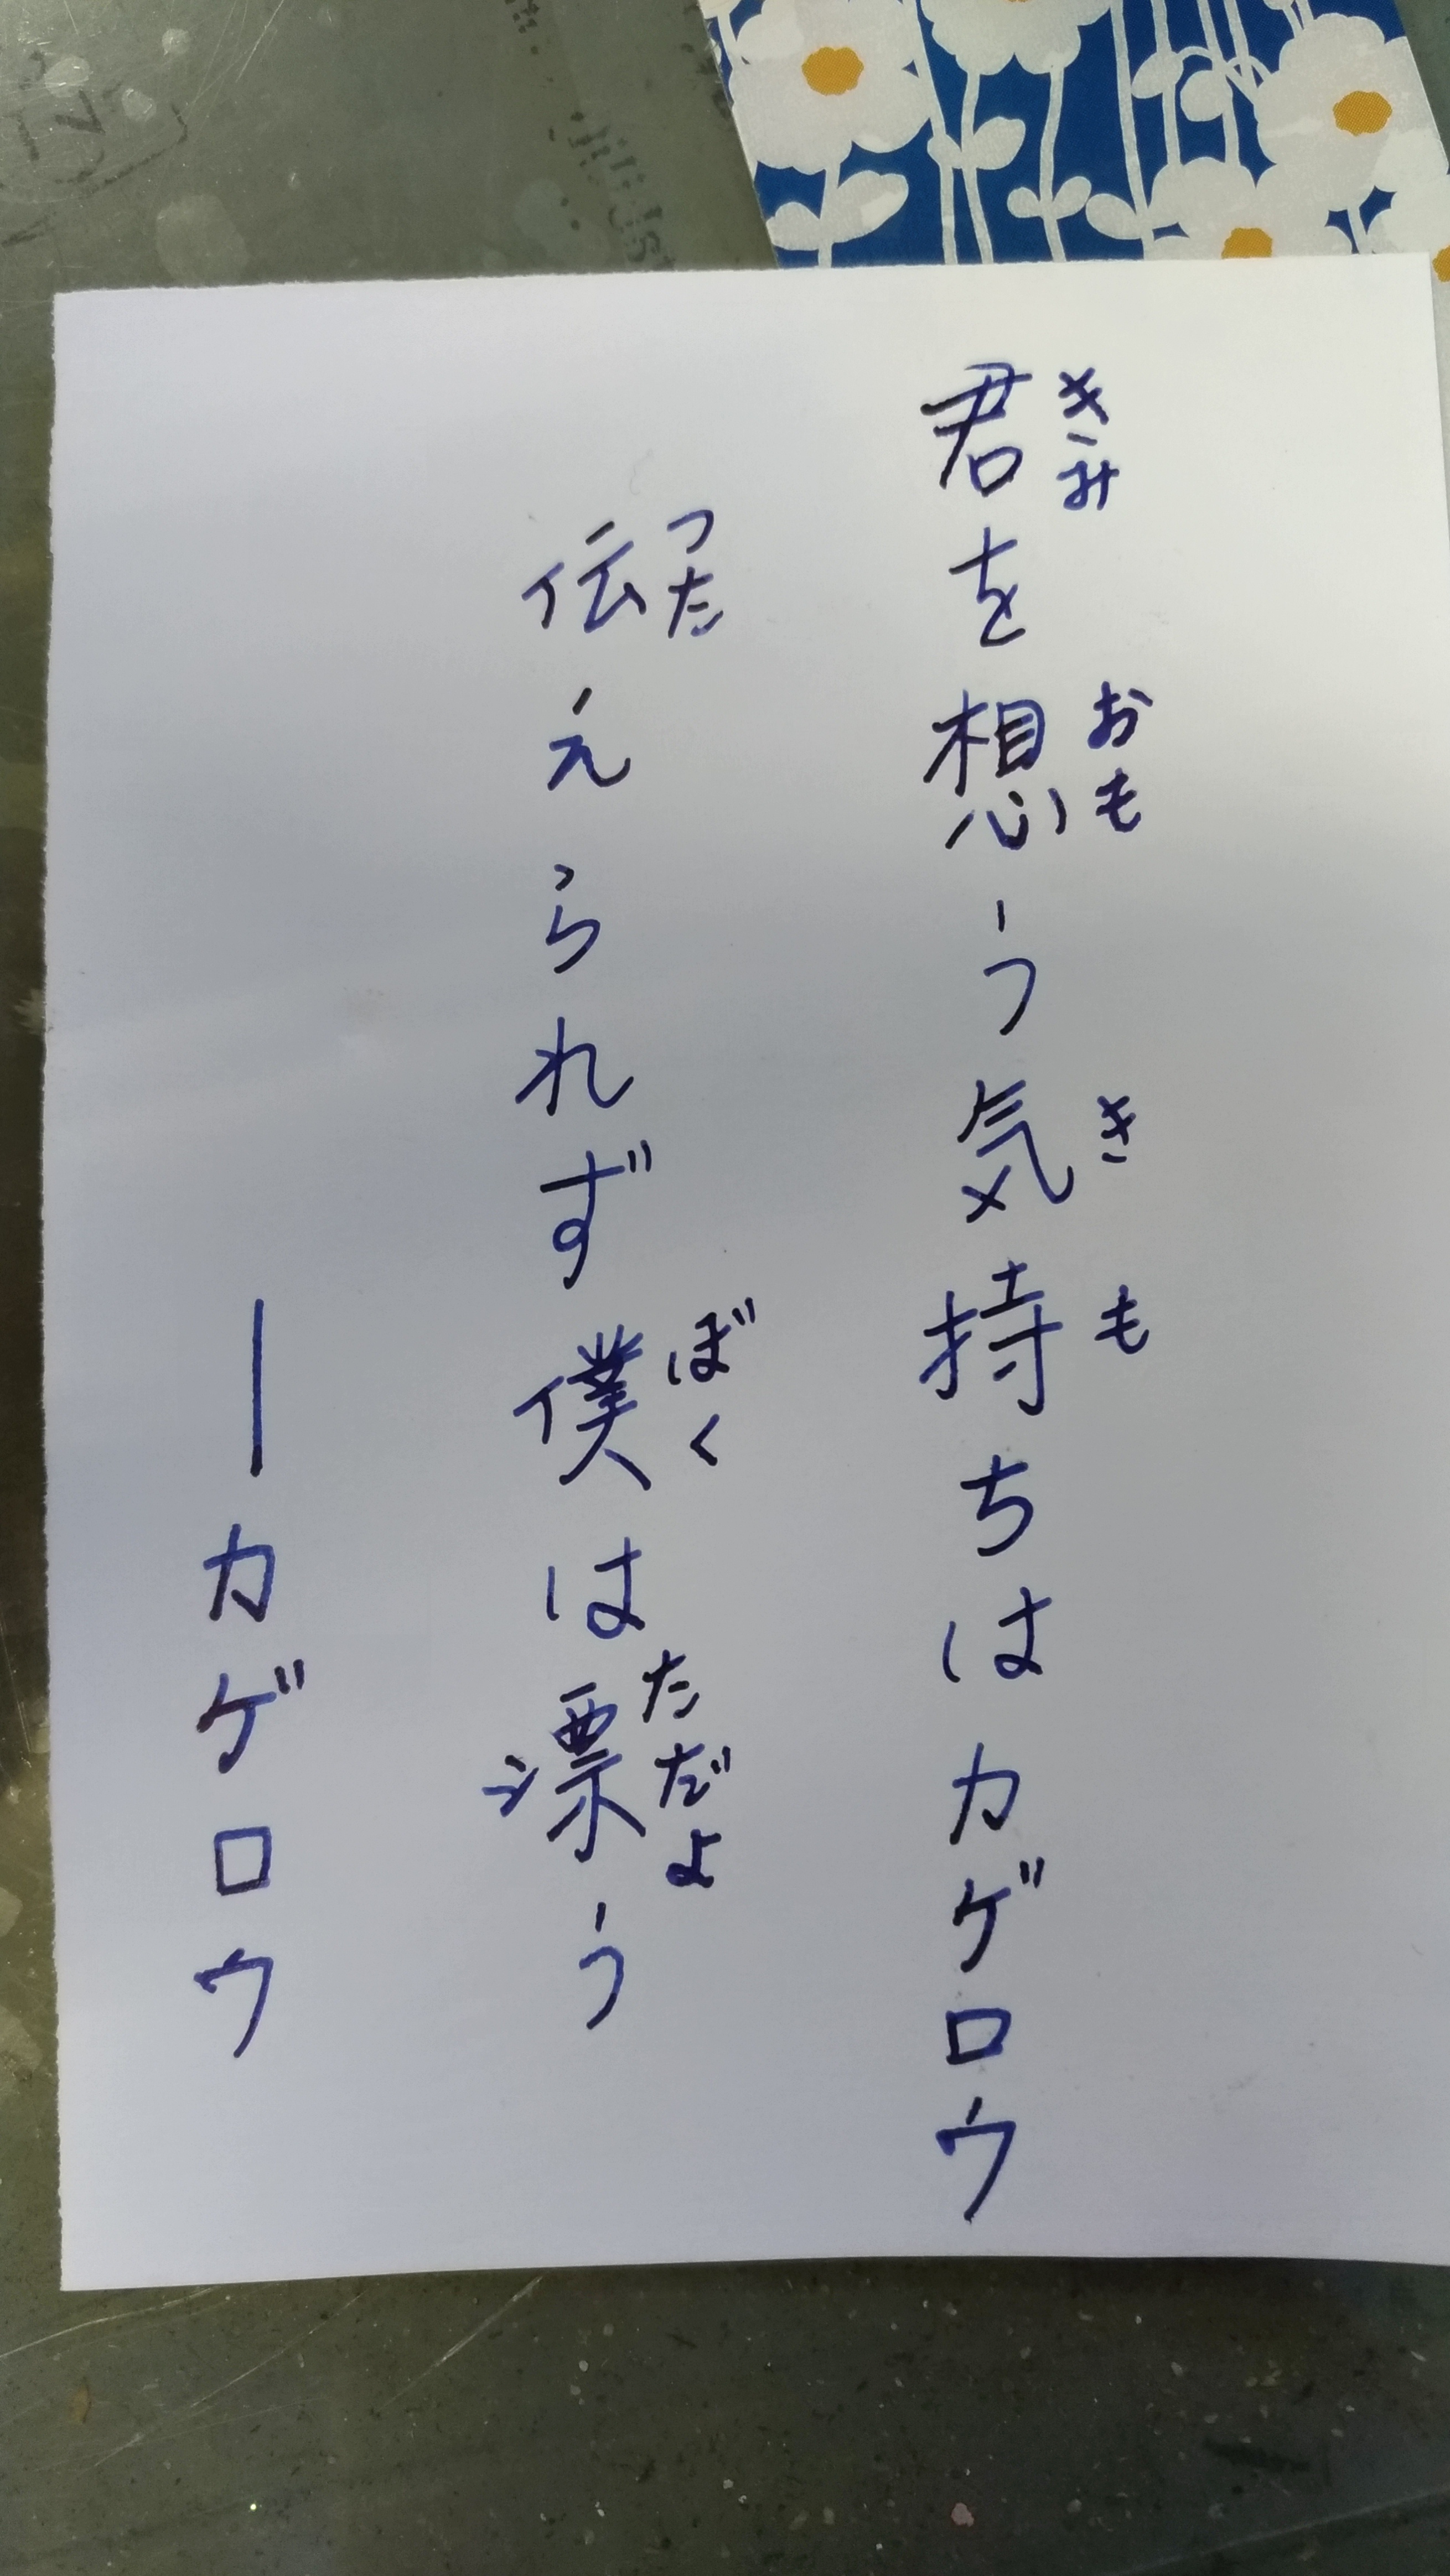 君を想う気持ちはカゲロウ
きみ おも き も
伝えられず僕は漂う
つた ぼく ただよ
―カゲロウ